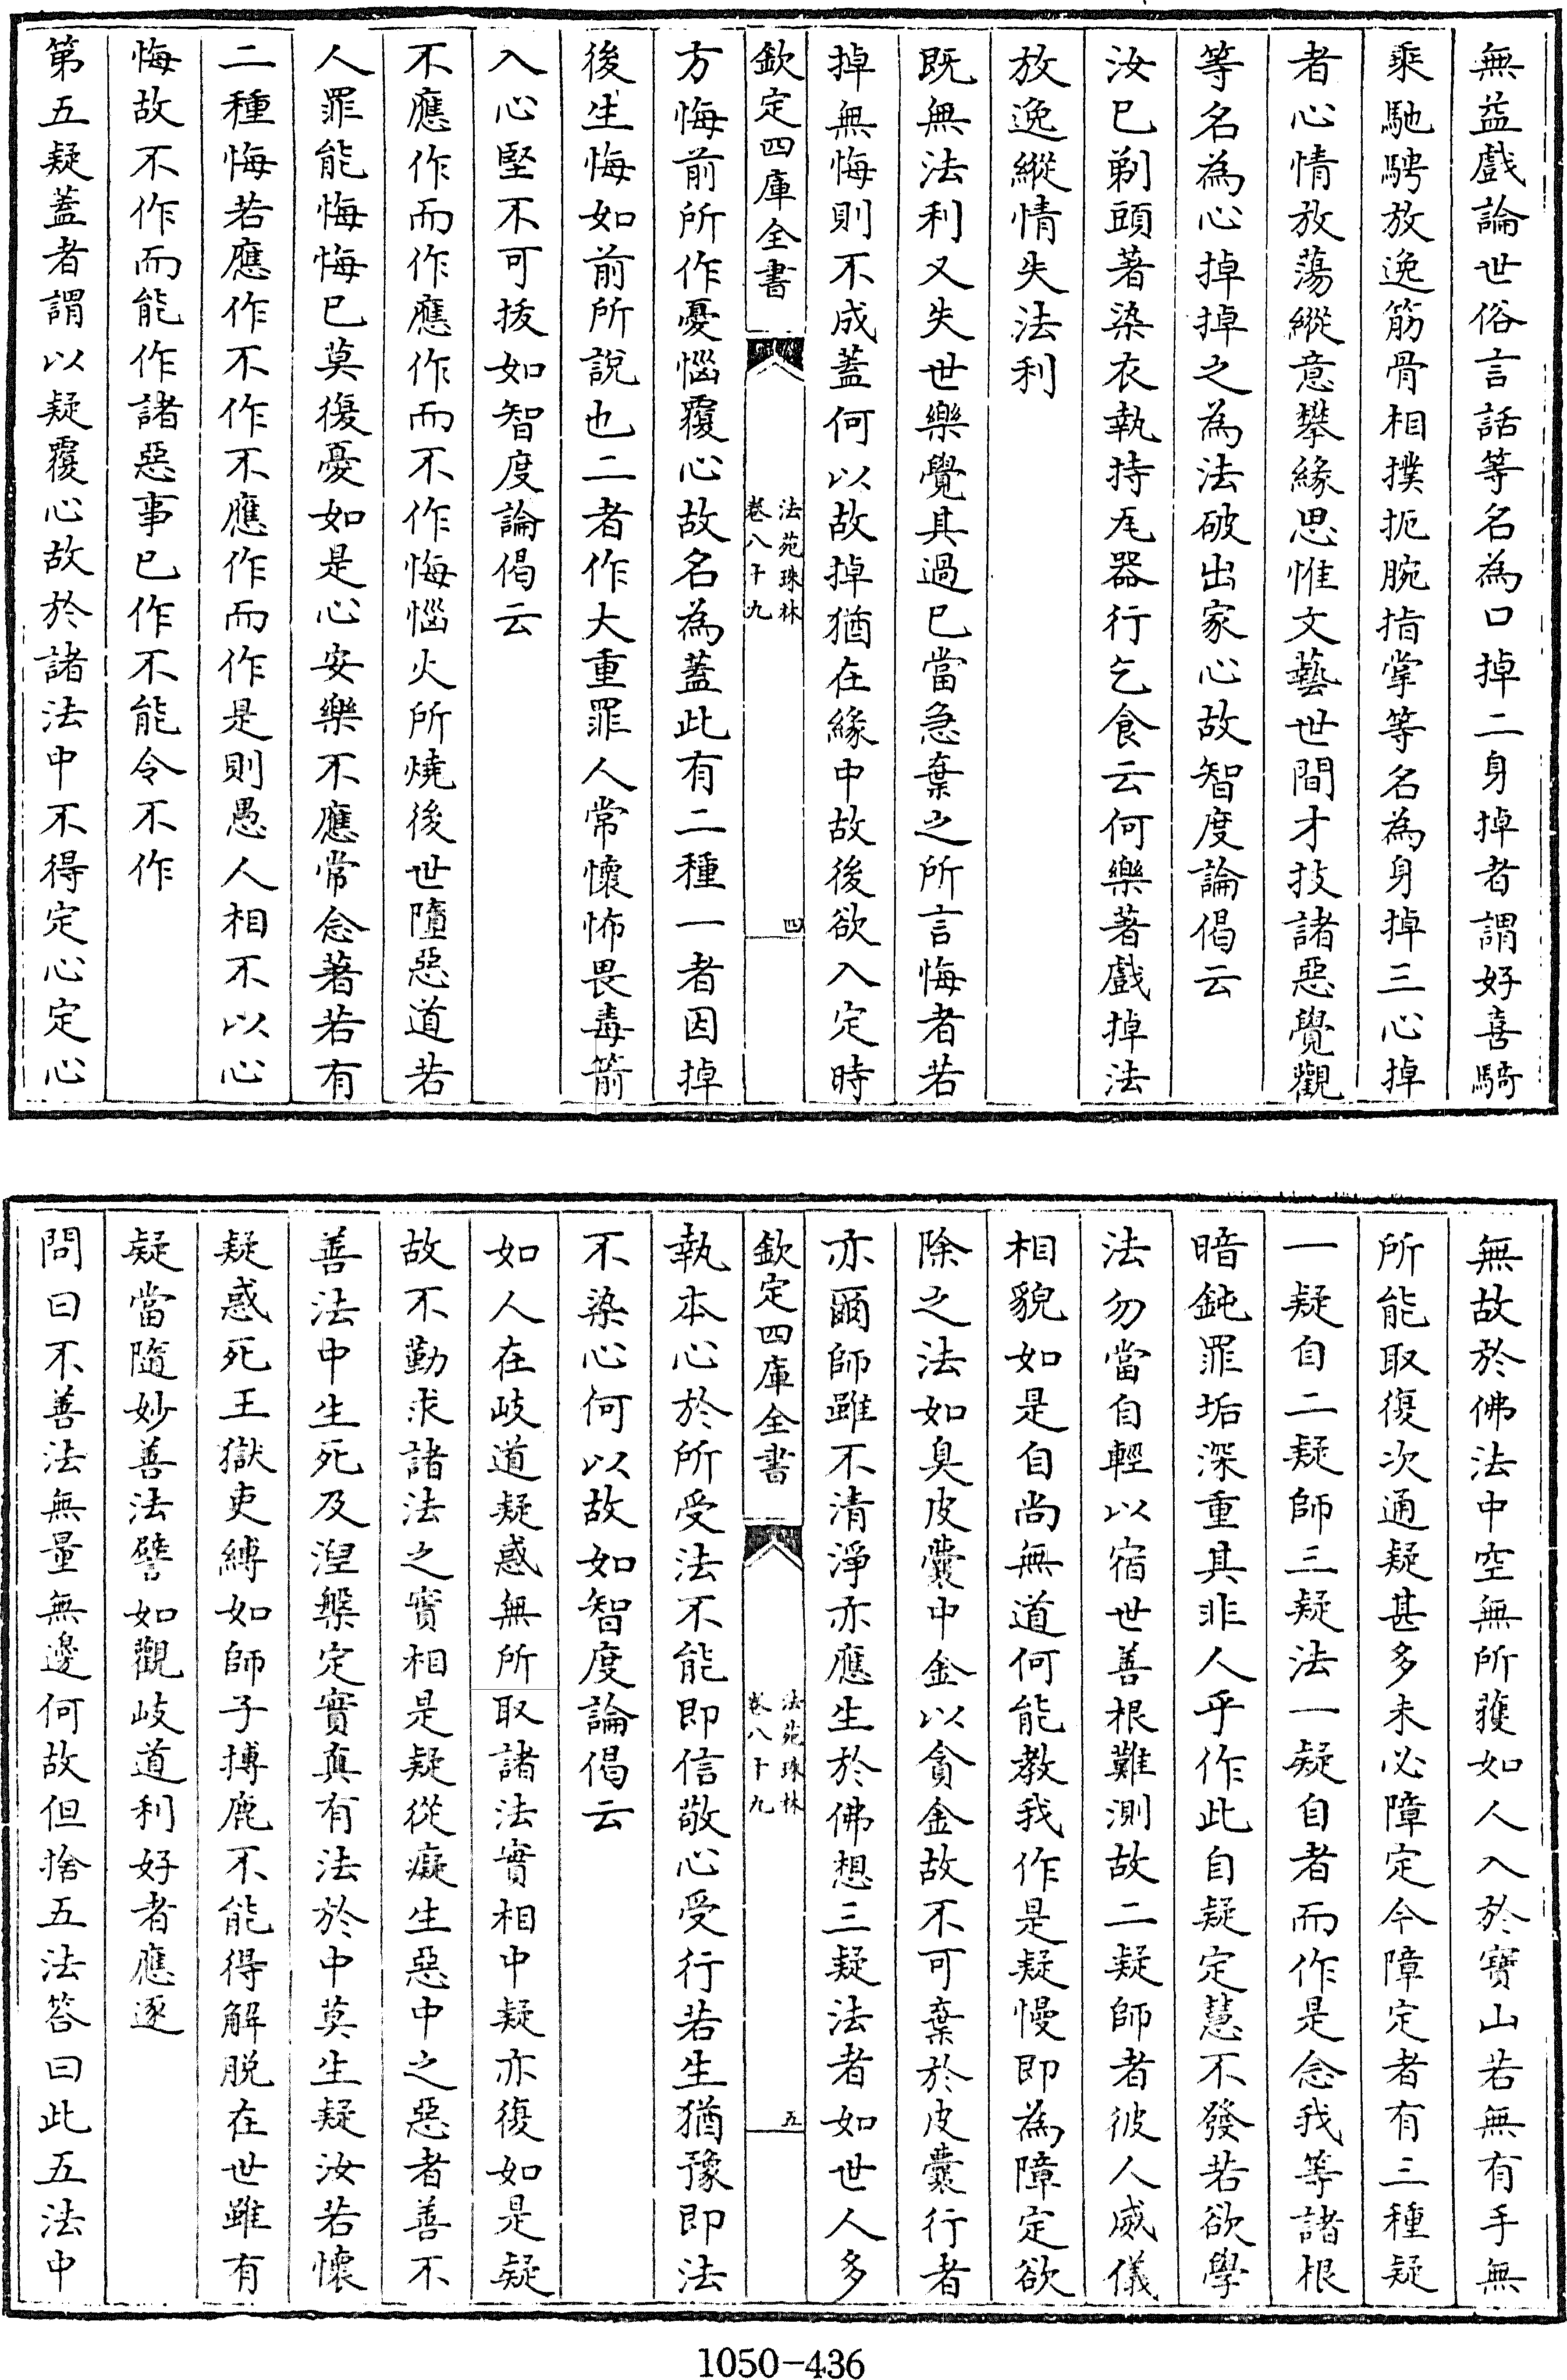 無益戲論世俗言話等名為口掉二身掉者謂好喜騎
乘馳騁放逸筋骨相撲扼腕指掌等名為身掉三心掉
者心情放蕩縱意攀緣思惟文藝世間才技諸惡覺觀
等名為心掉掉之為法破出家心故智度論偈云
汝已剃頭著染衣執持瓦器行乞食云何樂著戲掉法
放逸縱情失法利
既無法利又失世樂覺其過已當急棄之所言悔者若
掉無悔則不成蓋何以故掉猶在緣中故後欲入定時
欽定四庫全書
法苑珠林
卷八十九
四
方悔前所作憂惱覆心故名為蓋此有二種一者因掉
後生悔如前所說也二者作大重罪人常懷怖畏毒箭
入心堅不可拔如智度論偈云
不應作而作應作而不作悔惱火所燒後世墮惡道若
人罪能悔悔已莫復憂如是心安樂不應常念著若有
二種悔若應作不作不應作而作是則愚人相不以心
悔故不作而能作諸惡事已作不能令不作
第五疑蓋者謂以疑覆心故於諸法中不得定心定心
無故於佛法中空無所獲如人入於寶山若無有手無
所能取復次通疑甚多未必障定今障定者有三種疑
一疑自二疑師三疑法一疑自者而作是念我等諸根
暗鈍罪垢深重其非人乎作此自疑定慧不發若欲學
法勿當自輕以宿世善根難測故二疑師者彼人威儀
相貌如是自尚無道何能教我作是疑慢即為障定欲
除之法如臭皮囊中金以貪金故不可棄於皮囊行者
亦爾師雖不清淨亦應生於佛想三疑法者如世人多
欽定四庫全書
法苑珠林
卷八十九
五
執本心於所受法不能即信敬心受行若生猶豫即法
不染心何以故如智度論偈云
如人在岐道疑惑無所取諸法實相中疑亦復如是疑
故不勤求諸法之實相是疑從癡生惡中之惡者善不
善法中生死及涅槃定實真有法於中莫生疑汝若懷
疑惑死王獄吏縛如師子搏鹿不能得解脫在世雖有
疑當隨妙善法譬如觀岐道利好者應逐
問曰不善法無量無邊何故但捨五法答曰此五法中
1050-436